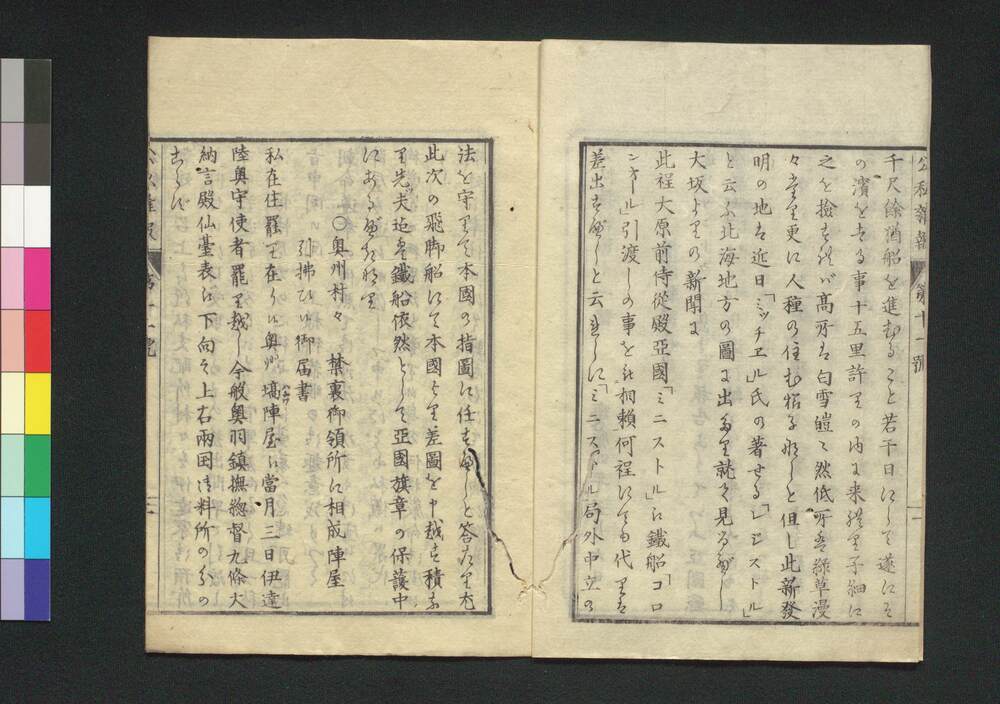 公私雑報 第十一號
千尺餘酒船を進むること若干日にして遂にそ
の濱をさる事十五里許りの内に来り子細に
之を撿するに高所は白雪皚々然低所は緑草漫
々とし更に人種の住む様子なしと但し此新發
明の地は近日「ミッチエル」氏の著せる「レジストル」
と云ふ北海地方の圖に出たり就て見るべし
大坂よりの新聞に
此程大原前侍從殿亞國「ミニストル」に鐵船「コロ
ンオール」引渡しの事を相賴何程にても代りは
差出すべしと云れしに「ミニストル」局外中立の
法を守りて本國の指圖に任すべしと答たり尤
此次の飛脚船にて本國より差圖を申越す積な
り先夫迄は鐵船依然として亞國旗章の保護中
にあるべきなり
○奥州村々 禁裏御領所に相成陣屋
引拂ひ御届書
私在住罷在り候奥州塙陣屋に當月三日伊達
陸奥守使者罷り越し今般奥羽鎮撫總督九條大
納言殿仙臺表に下向之上右兩国御料所の分の
こらず
第十一號